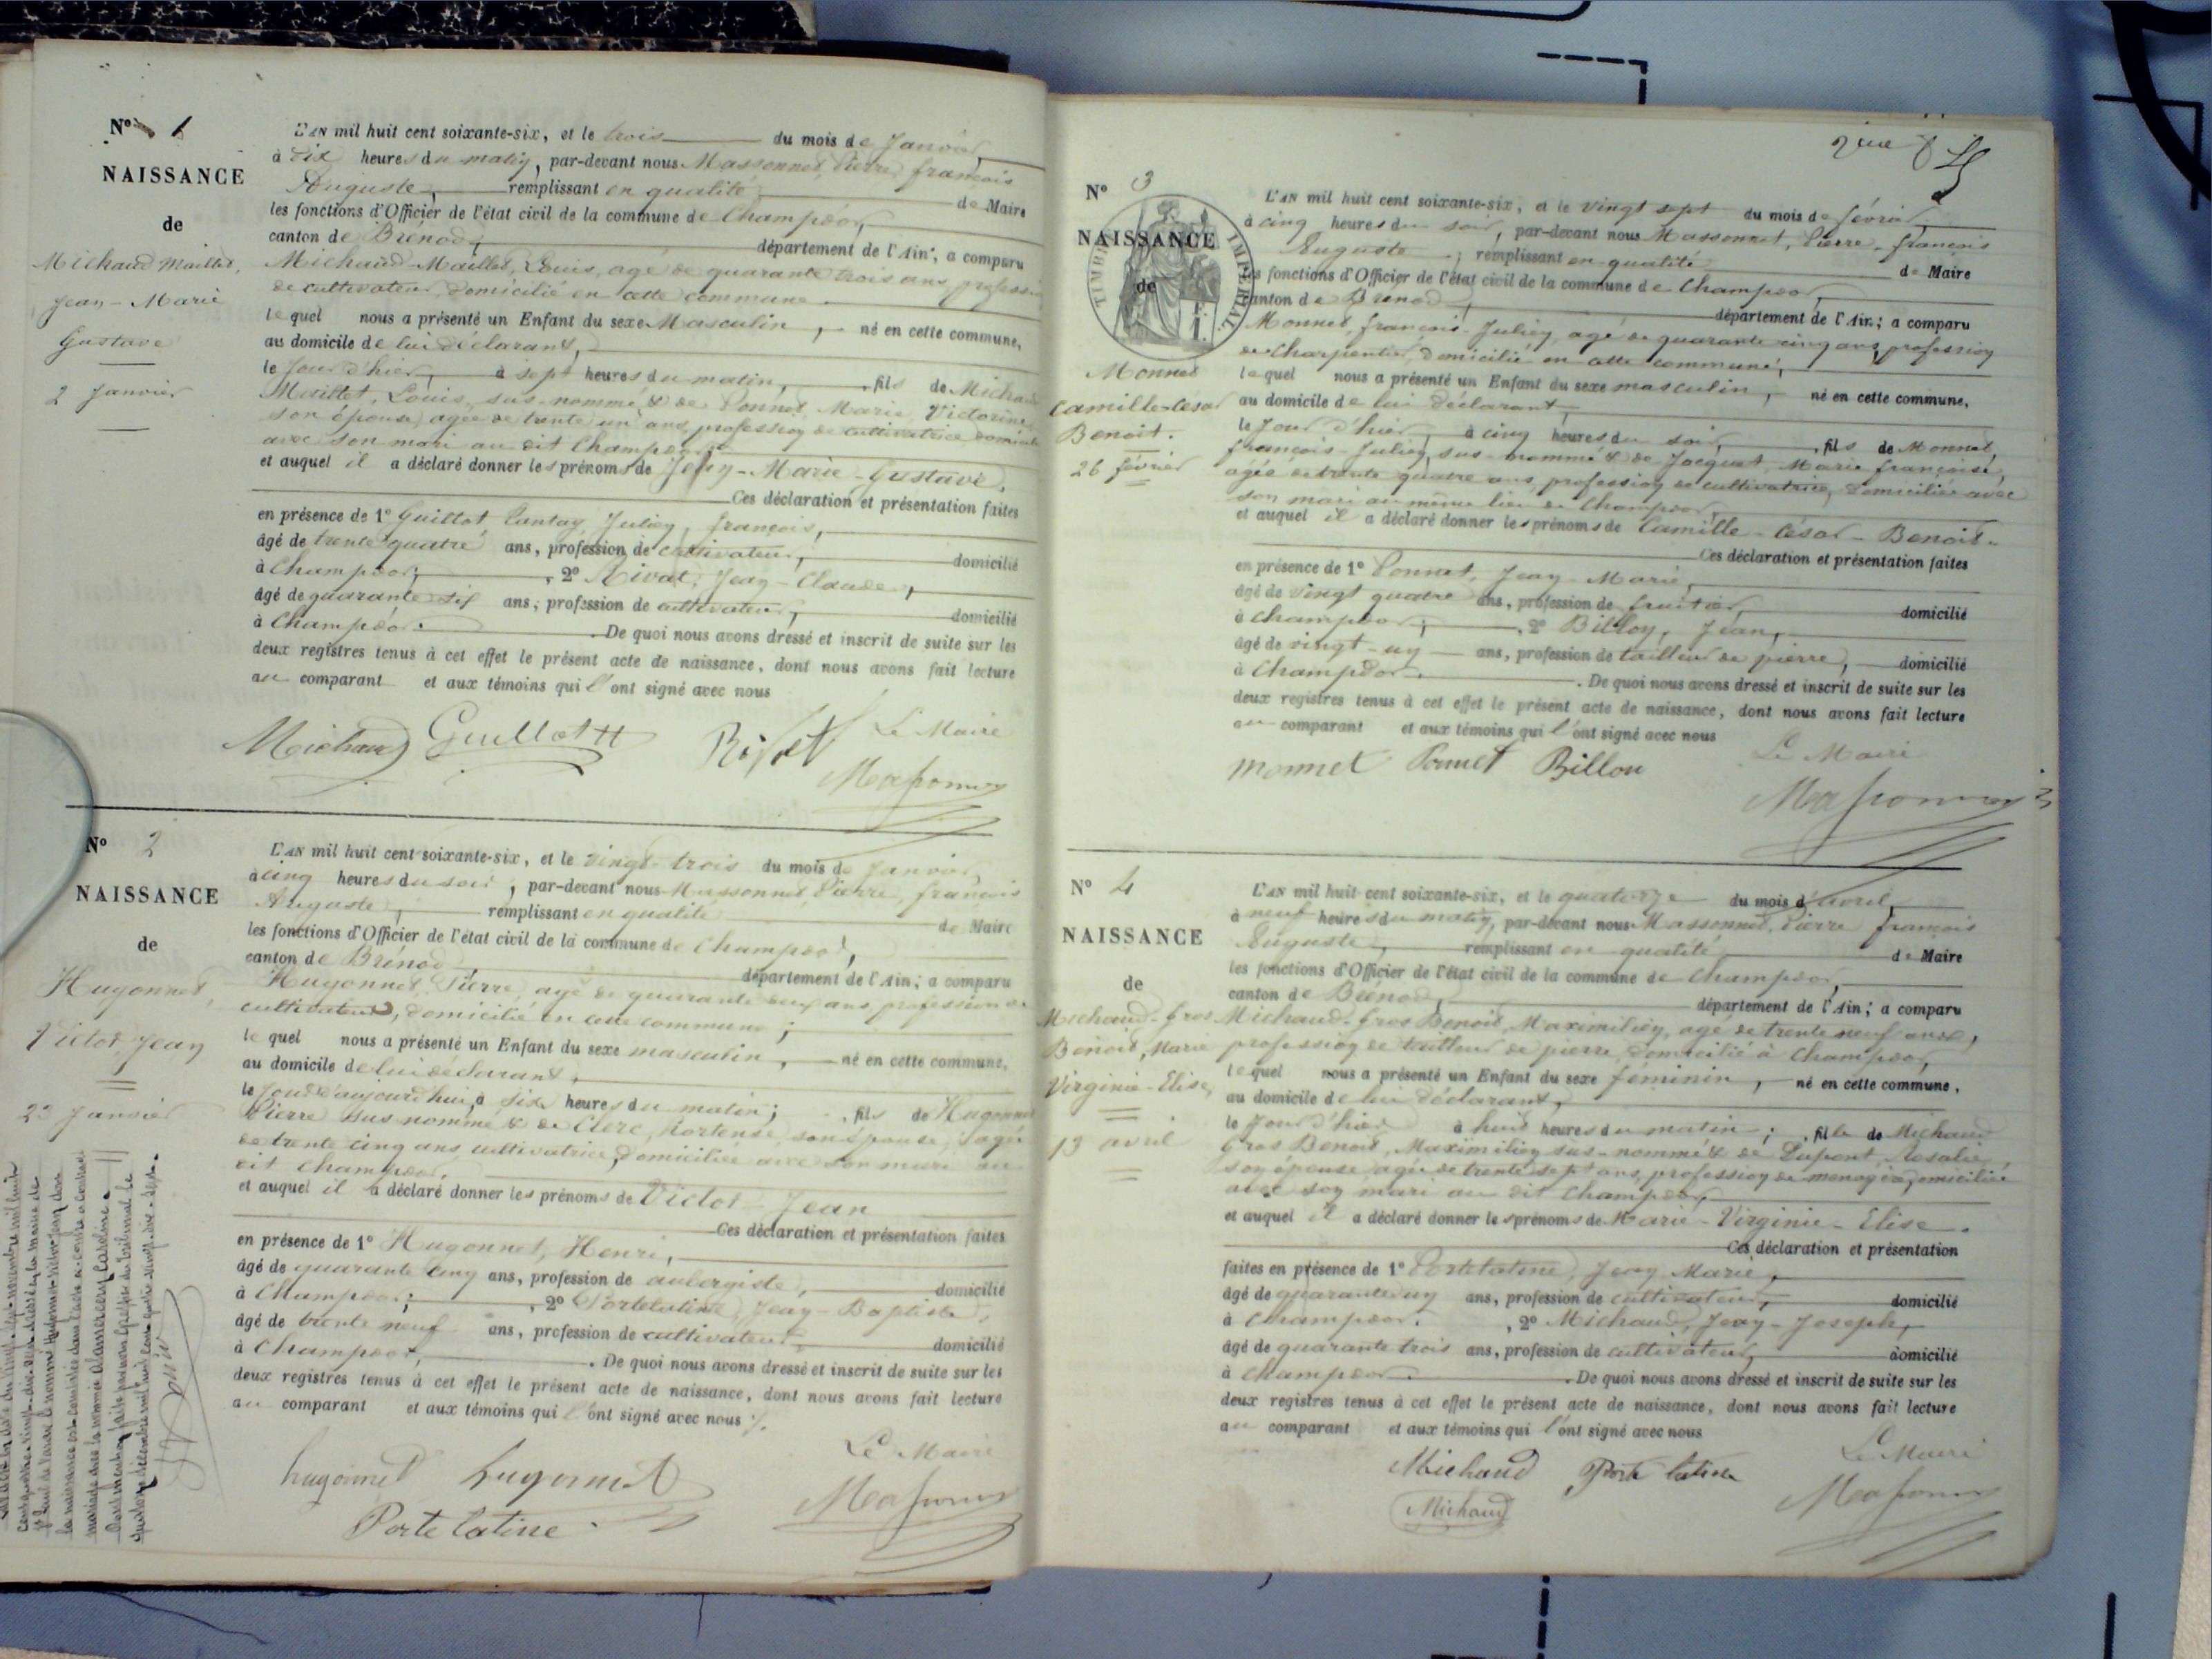 N° 1
NAISSANCE
de
Michaud Maillet,
Jean-Marie
Gustave
2 Janvier
L'AN mil huit cent soixante-six, et le trois du mois de Janvier,
à dix heures du matin, par-devant nous Massonnet, Pierre, françois
Auguste, remplissant en qualité de Maire
les fonctions d'Officier de l'état civil de la commune de Champdor,
canton de Brénod, département de l'Ain; a comparu
Michaud-Maillet, Louis, agé de quarante trois ans, profession
de cultivateur, domicilié en cette commune
lequel nous a présenté un Enfant du sexe Masculin, né en cette commune,
au domicile de lui déclarant,
le Jour d'hier, à sept heures du matin, fils de Michaud
Maillet, Louis, sus-nommé & de Ponnet, Marie Victorine
son épouse, agée de trente un ans, profession de cultivatrice domiciliée
avec son mari au dit Champdor,
et auquel il a déclaré donner les prénoms de Jean-Marie-Gustave.
Ces déclaration et présentation faites
en présence de 1° Guillot Julien, françois,
âgé de trente quatre ans, profession de cultivateur, domicilié
à Champdor, 2° Rivat, Jean-Claude,
âgé de quarante six ans, profession de cultivateur, domicilié
à Champdor. De quoi nous avons dressé et inscrit de suite sur les
deux registres tenus à cet effet le présent acte de naissance, dont nous avons fait lecture
au comparant et aux témoins qui l'ont signé avec nous
Le Maire
Michaud Guillott Rivat
Massonnet
N° 2
NAISSANCE
de
Hugonnet,
Victor Jean
23 Janvier
L'AN mil huit cent soixante-six, et le vingt-trois du mois de Janvier
à cinq heures du soir, par-devant nous Massonnet, Pierre, françois
Auguste, remplissant en qualité de Maire
les fonctions d'Officier de l'état civil de la commune de Champdor,
canton de Brénod département de l'Ain; a comparu
Hugonnet, Pierre, agé de quarante deux ans profession de
cultivateur, domicilié en cette commune;
lequel nous a présenté un Enfant du sexe masculin, né en cette commune,
au domicile de lui déclarant,
le Jour d'aujourd'hui, à six heures du matin; fils de Hugonnet
Pierre sus nommé & de Clerc, hortense, son épouse, agée
de trente cinq ans, cultivatrice, domiciliée avec son mari au
dit Champdor,
et auquel il a déclaré donner les prénoms de Victor-Jean
Ces déclaration et présentation faites
en présence de 1° Hugonnet, Henri,
âgé de quarante cinq ans, profession de aubergiste, domicilié
à Champdor; 2° Portelatine Jean-Baptiste,
âgé de trente neuf ans, profession de cultivateur, domicilié
à Champdor, De quoi nous avons dressé et inscrit de suite sur les
deux registres tenus à cet effet le présent acte de naissance, dont nous avons fait lecture
au comparant et aux témoins qui l'ont signé avec nous
Le Maire
hugonnet hugonnet
Massonnet
Porte latine
N° 3
NAISSANCE
de
TIMBRE IMPÉRIAL
Monnet
Camille-César
Benoit.
26 février
L'AN mil huit cent soixante-six, et le vingt sept du mois de février,
à cinq heures du soir, par-devant nous Massonnet, Pierre-françois
Auguste, remplissant en qualité de Maire
les fonctions d'Officier de l'état civil de la commune de Champdor,
canton de Brénod département de l'Ain; a comparu
Monnet, françois-Julien, agé de quarante cinq ans, profession
de Charpentier, domicilié en cette commune,
lequel nous a présenté un Enfant du sexe masculin, né en cette commune,
au domicile de lui déclarant,
le Jour d'hier, à cinq heures du soir, fils de Monnet,
françois-Julien, sus-nommé & de Jacquet, Marie françoise,
agée de trente quatre ans, profession de cultivatrice, domiciliée avec
son mari au même lieu de Champdor,
et auquel il a déclaré donner les prénoms de Camille-César-Benoit.
Ces déclaration et présentation faites
en présence de 1° Ponnet, Jean-Marie,
âgé de vingt quatre ans, profession de fruitier, domicilié
à Champdor; 2° Billon, Jean,
âgé de vingt-un ans, profession de tailleur de pierre, domicilié
à Champdor. De quoi nous avons dressé et inscrit de suite sur les
deux registres tenus à cet effet le présent acte de naissance, dont nous avons fait lecture
au comparant et aux témoins qui l'ont signé avec nous
Le Maire
monnet Ponnet Billon
Massonnet
N° 4
NAISSANCE
de
Michaud-Gros
Benoit, Marie
Virginie-Elise,
13 avril
L'AN mil huit cent soixante-six, et le quatorze du mois d'avril,
à neuf heures du matin, par-devant nous Massonnet, Pierre françois
Auguste, remplissant en qualité de Maire
les fonctions d'Officier de l'état civil de la commune de Champdor,
canton de Brénod, département de l'Ain; a comparu
Michaud-Gros Benoit, Maximilien, agé de trente neuf ans,
profession de tailleur de pierre, domicilié à Champdor,
lequel nous a présenté un Enfant du sexe féminin, né en cette commune,
au domicile de lui déclarant,
le Jour d'hier à huit heures du matin; fille de Michaud
Gros Benoit, Maximilien sus-nommé & de Dupont, Rosalie,
son épouse, agée de trente sept ans, profession de menagère, domiciliée
avec son mari au dit Champdor,
et auquel il a déclaré donner les prénoms de Marie-Virginie-Elise.
Ces déclaration et présentation
faites en présence de 1° Portelatine, Jean Marie,
âgé de quarante un ans, profession de cultivateur, domicilié
à Champdor. 2° Michaud, Jean-Joseph,
âgé de quarante trois ans, profession de cultivateur, domicilié
à Champdor. De quoi nous avons dressé et inscrit de suite sur les
deux registres tenus à cet effet le présent acte de naissance, dont nous avons fait lecture
au comparant et aux témoins qui l'ont signé avec nous
Le Maire
Michaud Porte latine
Massonnet
Michaud